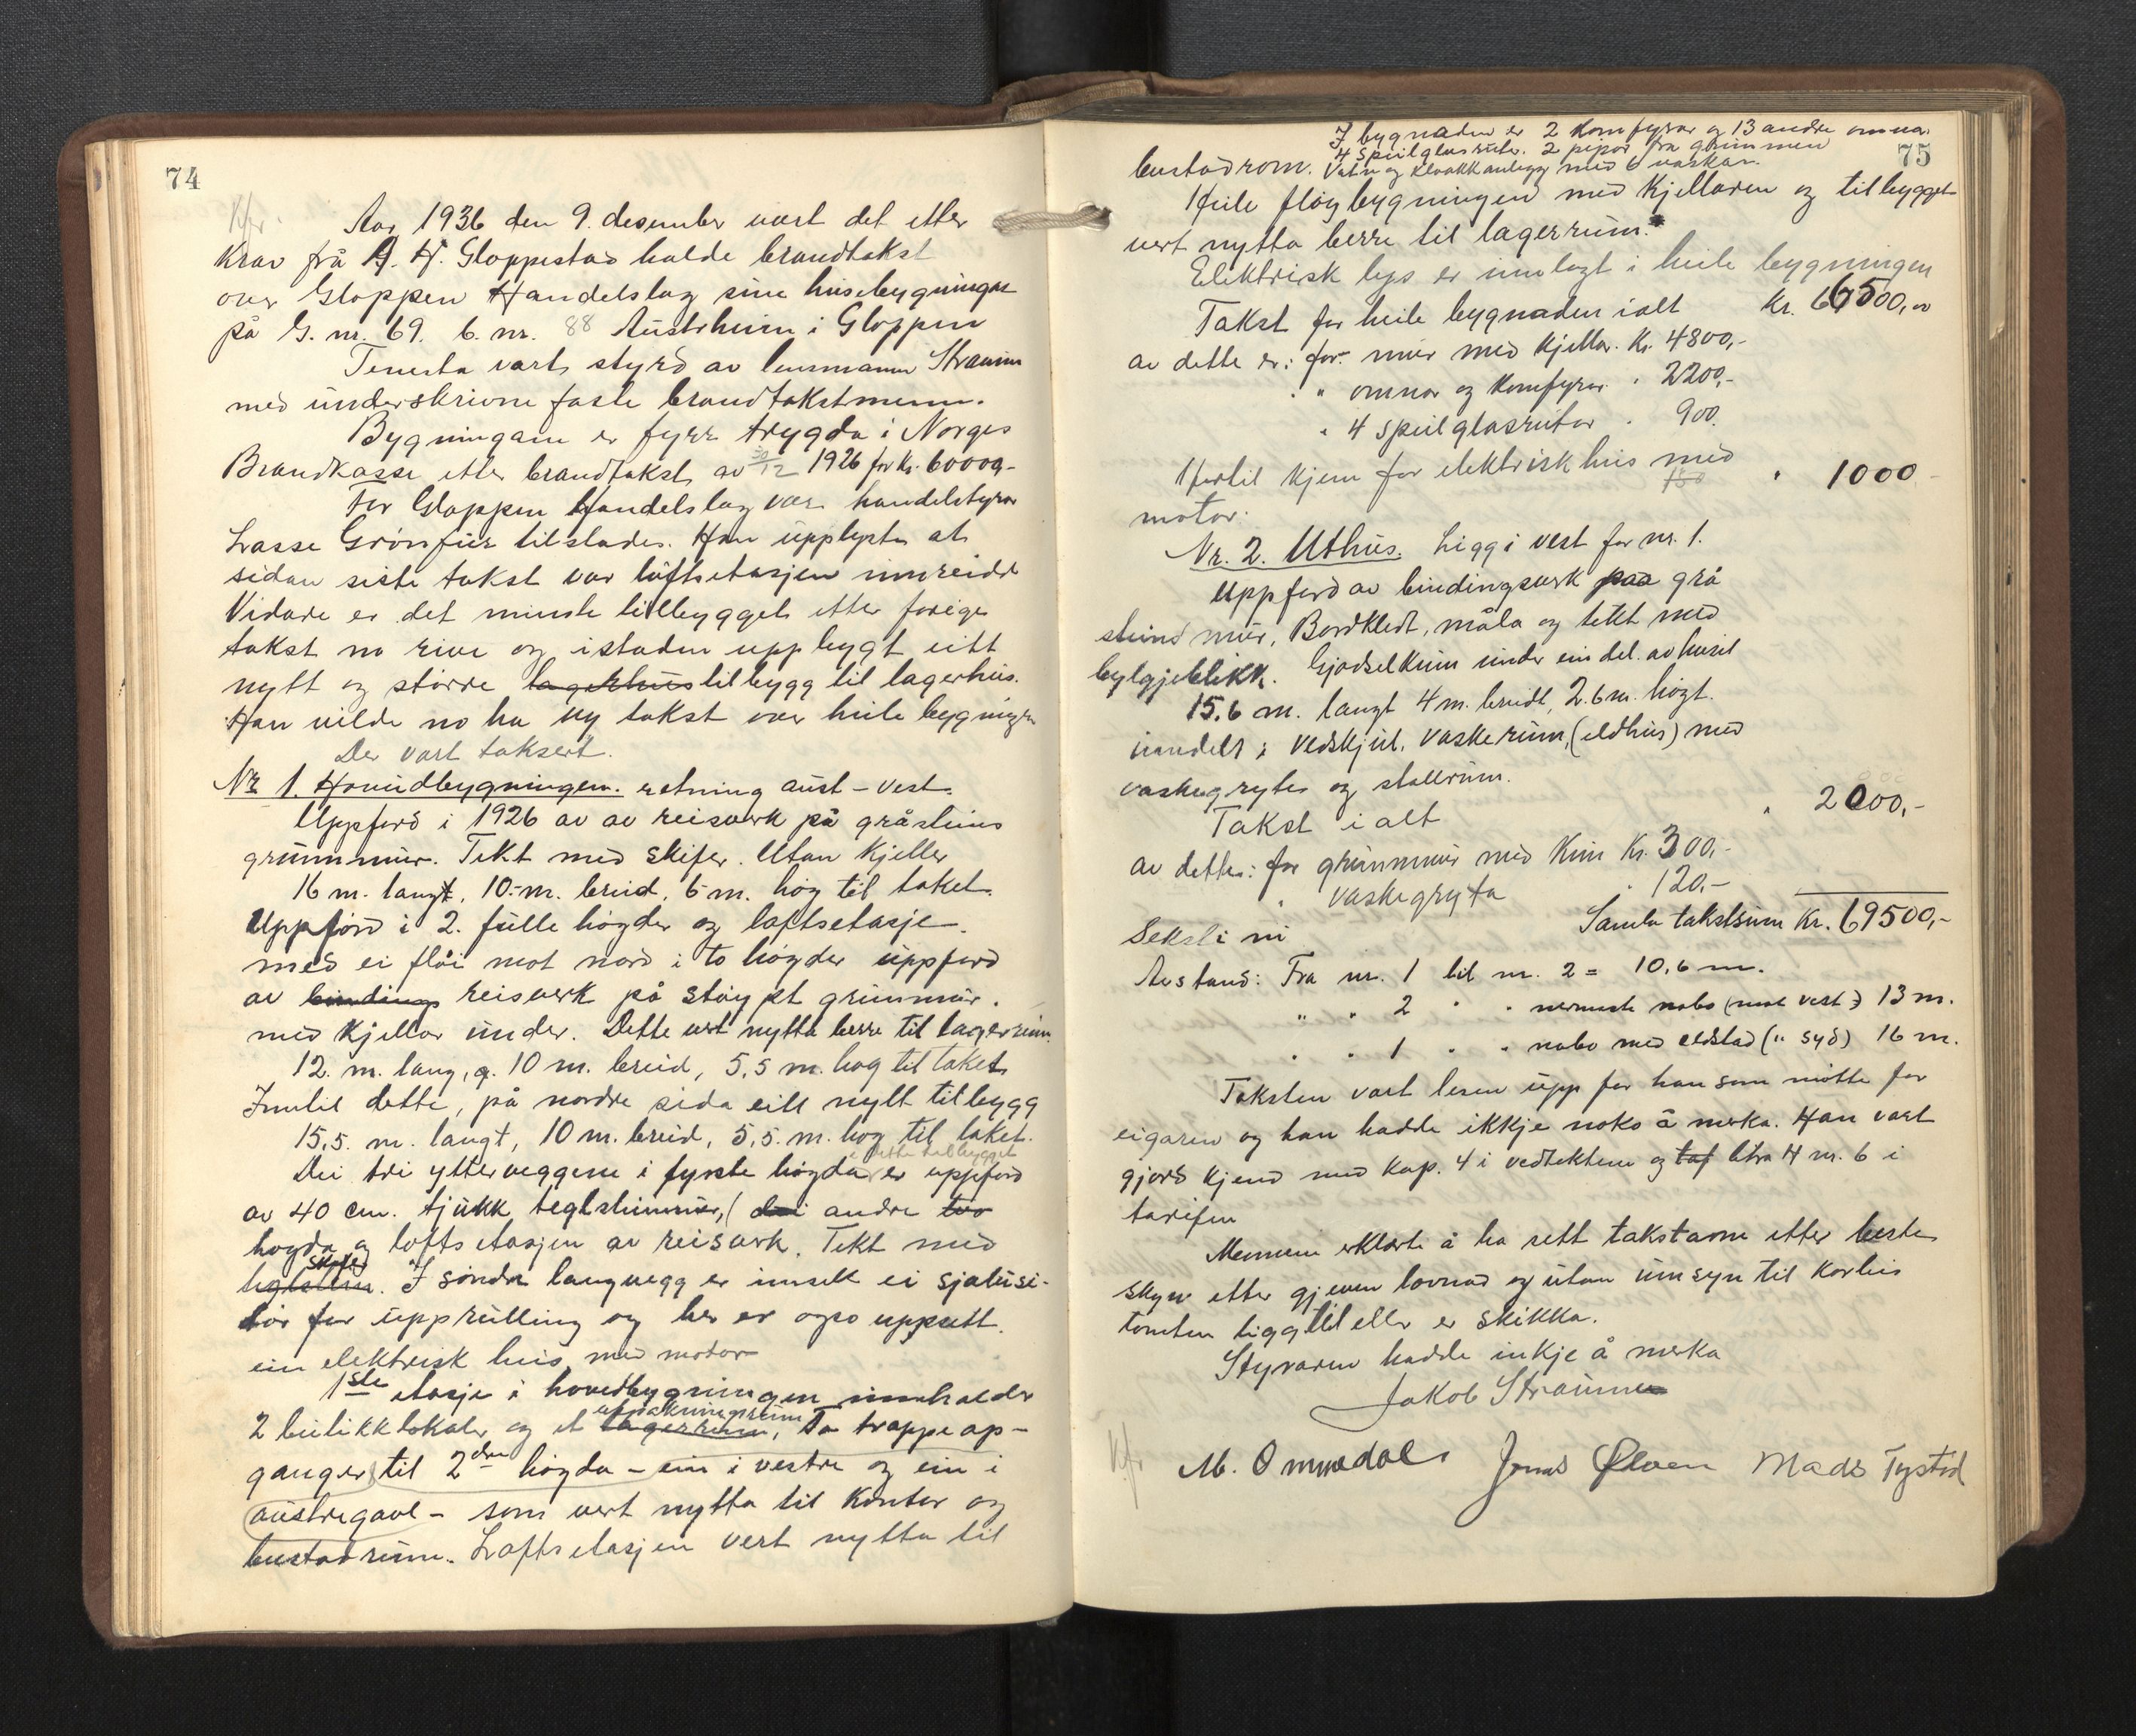 74
Kfr.
Aar 1936 den 9. desember vart det etter
krav frå A. H. Gloppestad halde brandtakst
over Gloppen Handelslag sine husebygningar
på G. nr. 69. b. nr. 88 Austrheim i Gloppen
Tenesta vart styrd av lensmann Straume
med underskrivne faste brandtakstmenn.
Bygningane er fyrr trygda i Norges
Brandkasse etter brandtakst av 30/12 1926 for Kr. 60000,-
For Gloppen Handelslag var handelstyrar
Lasse Grønfur tilstades. Han upplyste at
sidan siste takst var loftsetasjen innreidd
Vidare er det minste tilbygget etter forige
takst no rive og istaden uppbygt eitt
nytt og större lagerhus tilbygg til lagerhus.
Han vilde no ha ny takst over heile bygningen
Der vart taksert.
Nr. 1. Hovudbygningen. retning aust - vest.
Uppförd i 1926 av av reisverk på gråsteins
grunnmur. Tekt med skifer. Utan kjeller
16 m. langt, 10.-m. breid, 6-m. høg til taket.
Uppförd i 2. fulle högder og loftsetasje.
med ei flöi mot nord i to högder uppförd
av bindings reisverk på støypt grunnmur.
med kjellar under. Dette vert nytta berre til lagerrum.
12. m. lang, 10 m. breid, 5,5 m. høg til taket
Inntil dette, på nordre sida eitt nytt tilbygg
15,5. m. langt, 10 m. breid, 5,5. m. høg til taket.
i dette tilbygget
Dei tri ytterveggene i fyrste högda er uppförd
av 40 cm. tjukk teglsteinmur, ( dei andre tvo
hogda og loftsetasjen av reisverk. Tekt med
skifer
teglstein. I söndre langvegg er innsett ei sjalusi-
dör for upprulling og her er ogso uppsett
ein elektrisk heis med motor
1ste etasje i hovedbygningen innhalder
utpakningsrum
2 butikklokaler og et lagerrum, To trappeop-
ganger til 2dre högda - ein i vestre og ein i
austre gavl - som vert nytta til kontor og
bustadrum. Loftsetasjen vert nytta til
75
I bygnaden er 2 komfyrar og 13 andre omnar
4 speilglasruter. 2 pipor fra grunnen
bustadrom. Vatn og kloakkanlegg med 6 vaskar.
Heile flöybygningen med kjellaren og tilbygget
vert nytta berre til lagerrum.
Elektrisk lys er innlagt i heile bygningen
Takst for heile bygnaden ialt Kr. 66500,00
av dette er: for mur med kjellar. Kr. 4800,-
" " omnar og komfyrar " 2200,-
" 4 speilglasrutor " 900.
Hertil kjem for elektrisk heis med
150
motor. " 1000 -
Nr. 2. Uthus. Ligg i vest for nr. 1.
Uppførd av bindingsverk paa grå
steins mur, Bordkledt, måla og tekt med
bylgjeblikk. Gjødselkum under ein del av huset
15,6 m. langt 4 m. breidt, 2.6 m. högt.
inndelt i vedskjul, vaskerum, (eldhus) med
vaskegryte og stallrum.
Takst i alt " 2000,-
av dette: for grunnmur med kum Kr. 300,-
" vaskegryta " 120,-
Samla takstsum Kr. 69500,-
Seksti ni
Avstand: Fra nr. 1 til nr. 2 = 10,6 m.
" " 2 " " nermeste nabo (mot vest) 13 m.
" " 1 " " nabo med eldstad (" syd) 16 m.
Taksten vart lesen upp for han som møtte for
eigaren og han hadde ikkje noko å merka. Han vart
gjord kjend med kap. 4 i vedtektene og taf litra H nr. 6 i
tarifen
Mennene erklærte å ha sett takstane etter beste
skyn etter gjeven lovnad og utan umsyn til korleis
tomten ligg til eller er skikka.
Styraren hadde inkje å merka
Jakob Straume
Kfr
M. Ommedal Jonas Øloen Mads Tystad